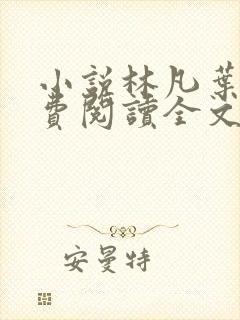 小説林凡葉
費閱讀全文
安曼特